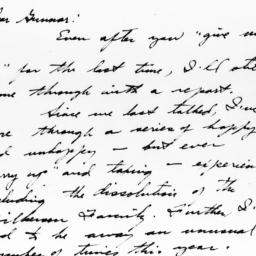 Gunnar:
Even after you "give
" for the last time, I'll
through with a report.
Since we last talked, I've
through a series of happy
unhappy - but ever
" and taking - experien
the dissolution of the
Family. Further I
to be away an unusual
number of times this year.